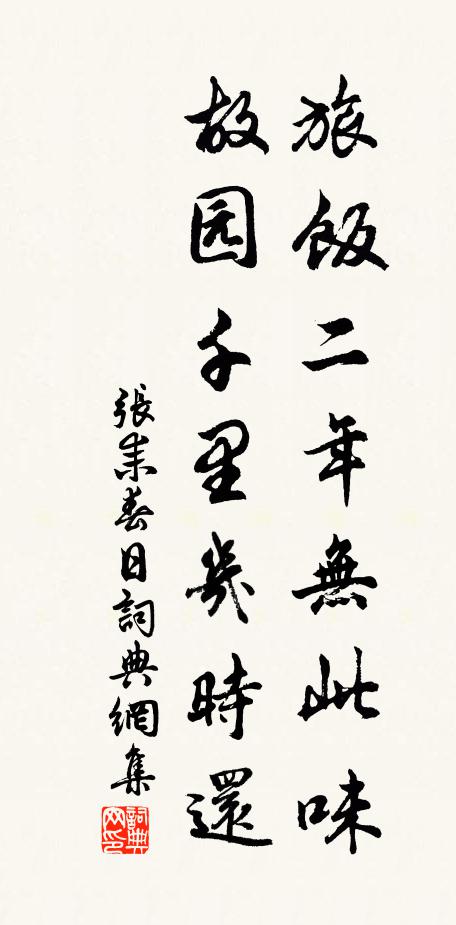 旅飯二年無此味
故园千里幾時還
張耒春日詞典網集
詞典网印